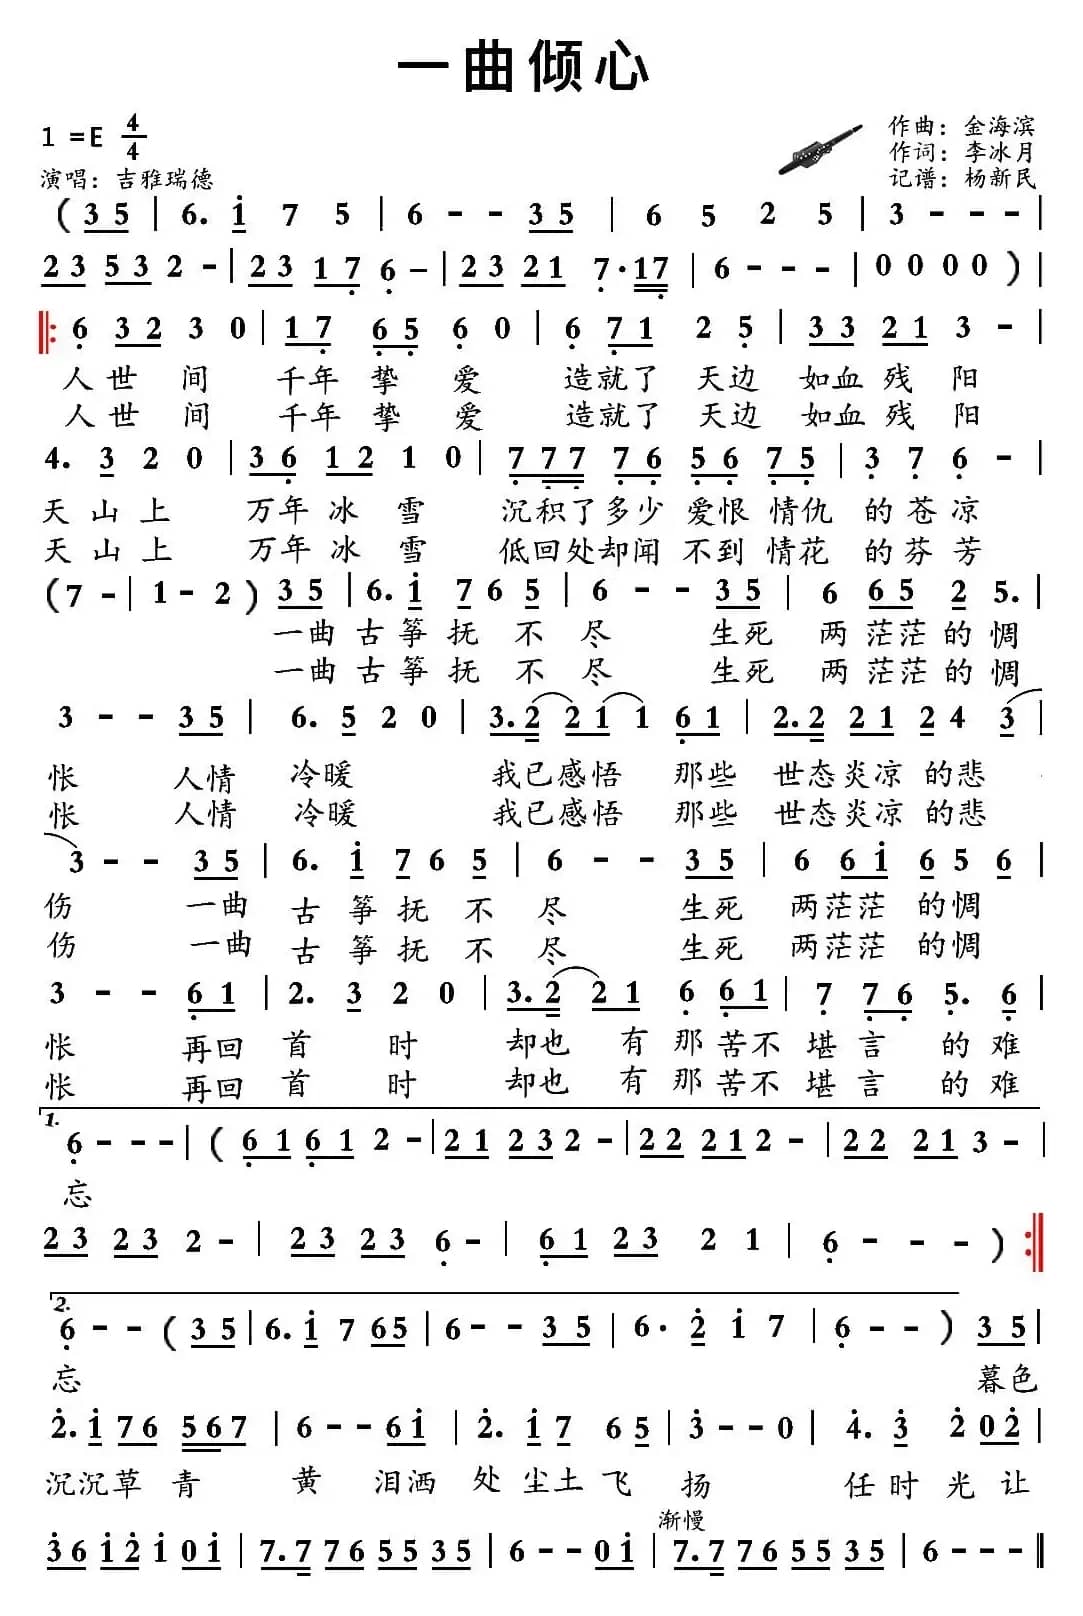 一曲倾心
1 =E 4/4
作曲：金海滨
作词：李冰月
演唱：吉雅瑞德
记谱：杨新民
( 3 5 | 6. i 7 5 | 6 - - 3 5 | 6 5 2 5 | 3 - - - |
2 3 5 3 2 - | 2 3 1 7 6 - | 2 3 2 1 7 · 1 7 | 6 - - - | 0 0 0 0 ) |
‖: 6 3 2 3 0 | 1 7 6 5 6 0 | 6 7 1 2 5 | 3 3 2 1 3 - |
人世间 千年挚爱 造就了天边 如血残阳
人世间 千年挚爱 造就了天边 如血残阳
4. 3 2 0 | 3 6 1 2 1 0 | 7 7 7 7 6 5 6 7 5 | 3 7 6 - |
天山上 万年冰雪 沉积了多少爱恨情仇 的苍凉
天山上 万年冰雪 低回处却闻不到情花 的芬芳
( 7 - | 1 - 2 ) 3 5 | 6. i 7 6 5 | 6 - - 3 5 | 6 6 5 2 5. |
一曲古筝抚不尽 生死两茫茫的惆
一曲古筝抚不尽 生死两茫茫的惆
3 - - 3 5 | 6. 5 2 0 | 3. 2 2 1 1 6 1 | 2. 2 2 1 2 4 3 |
怅 人情冷暖 我已感悟 那些世态炎凉的悲
怅 人情冷暖 我已感悟 那些世态炎凉的悲
3 - - 3 5 | 6. i 7 6 5 | 6 - - 3 5 | 6 6 i 6 5 6 |
伤 一曲古筝抚不尽 生死两茫茫的惆
伤 一曲古筝抚不尽 生死两茫茫的惆
3 - - 6 1 | 2. 3 2 0 | 3. 2 2 1 6 6 1 | 7 7 6 5. 6 |
怅 再回首时 却也有那苦不堪言的难
怅 再回首时 却也有那苦不堪言的难
1.
6 - - - | ( 6 1 6 1 2 - | 2 1 2 3 2 - | 2 2 2 1 2 - | 2 2 2 1 3 - |
忘
2 3 2 3 2 - | 2 3 2 3 6 - | 6 1 2 3 2 1 | 6 - - - ) :‖
2.
6 - - ( 3 5 | 6. i 7 6 5 | 6 - - 3 5 | 6 · 2 i 7 | 6 - - ) 3 5 |
忘 暮色
2. i 7 6 5 6 7 | 6 - - 6 i | 2. i 7 6 5 | 3 - - 0 | 4. 3 2 0 2 |
沉沉草青黄 泪洒处尘土飞扬 任时光让
渐慢
3 6 i 2 i 0 i | 7. 7 7 6 5 5 3 5 | 6 - - 0 i | 7. 7 7 6 5 5 3 5 | 6 - - - ‖